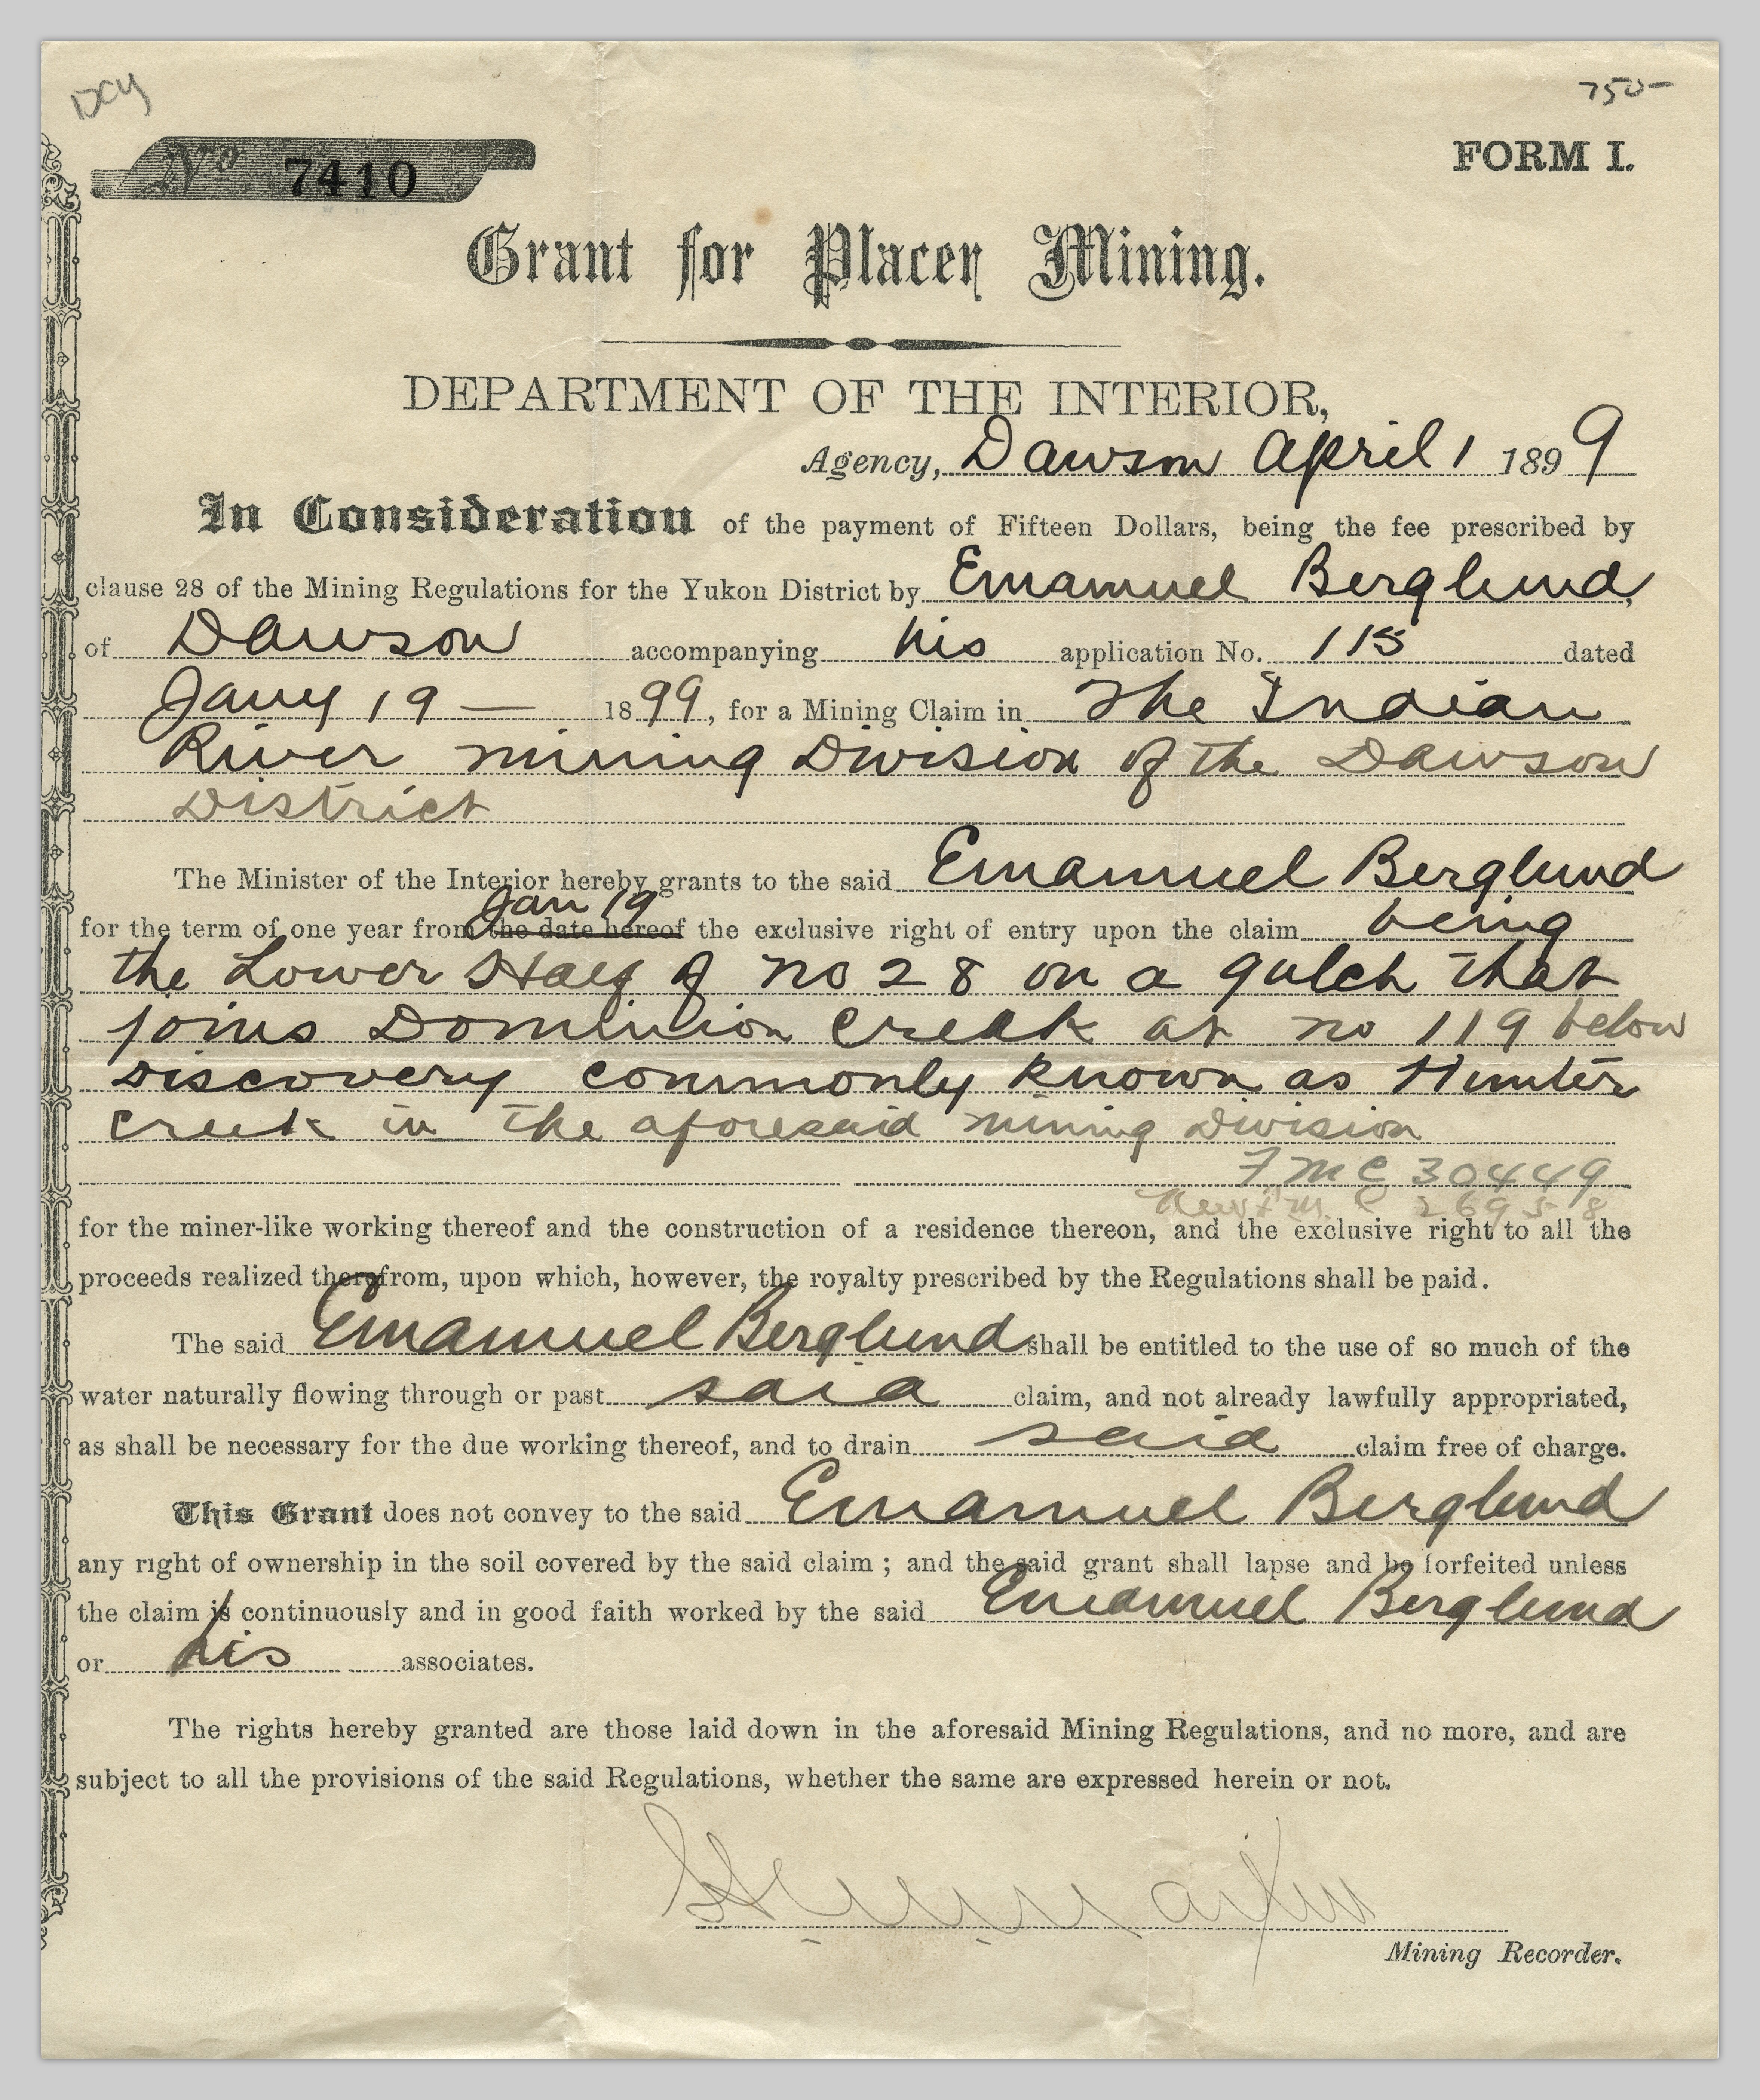 DCY
750-
No 7410
FORM I.
Grant for Placer Mining.
DEPARTMENT OF THE INTERIOR,
Agency, Dawson April 1 1899
In Consideration of the payment of Fifteen Dollars, being the fee prescribed by
clause 28 of the Mining Regulations for the Yukon District by Emamuel Berglund,
of Dawson accompanying his application No. 115 dated
Jany 19 — 1899, for a Mining Claim in The Indian
River mining Division of the Dawson
District
The Minister of the Interior hereby grants to the said Emamuel Berglund
Jan 19
for the term of one year from the date hereof the exclusive right of entry upon the claim being
the Lower Half of no 28 on a gulch that
joins Dominion Creek at no 119 below
Discovery commonly known as Hunter
Creek in the aforesaid mining Division
F.M.C 30449
New F.M.C 26958
for the miner-like working thereof and the construction of a residence thereon, and the exclusive right to all the
proceeds realized therefrom, upon which, however, the royalty prescribed by the Regulations shall be paid.
The said Emamuel Berglund shall be entitled to the use of so much of the
water naturally flowing through or past said claim, and not already lawfully appropriated,
as shall be necessary for the due working thereof, and to drain said claim free of charge.
This Grant does not convey to the said Emamuel Berglund
any right of ownership in the soil covered by the said claim ; and the said grant shall lapse and be forfeited unless
the claim is continuously and in good faith worked by the said Emamuel Berglund
or his associates.
The rights hereby granted are those laid down in the aforesaid Mining Regulations, and no more, and are
subject to all the provisions of the said Regulations, whether the same are expressed herein or not.
Mining Recorder.